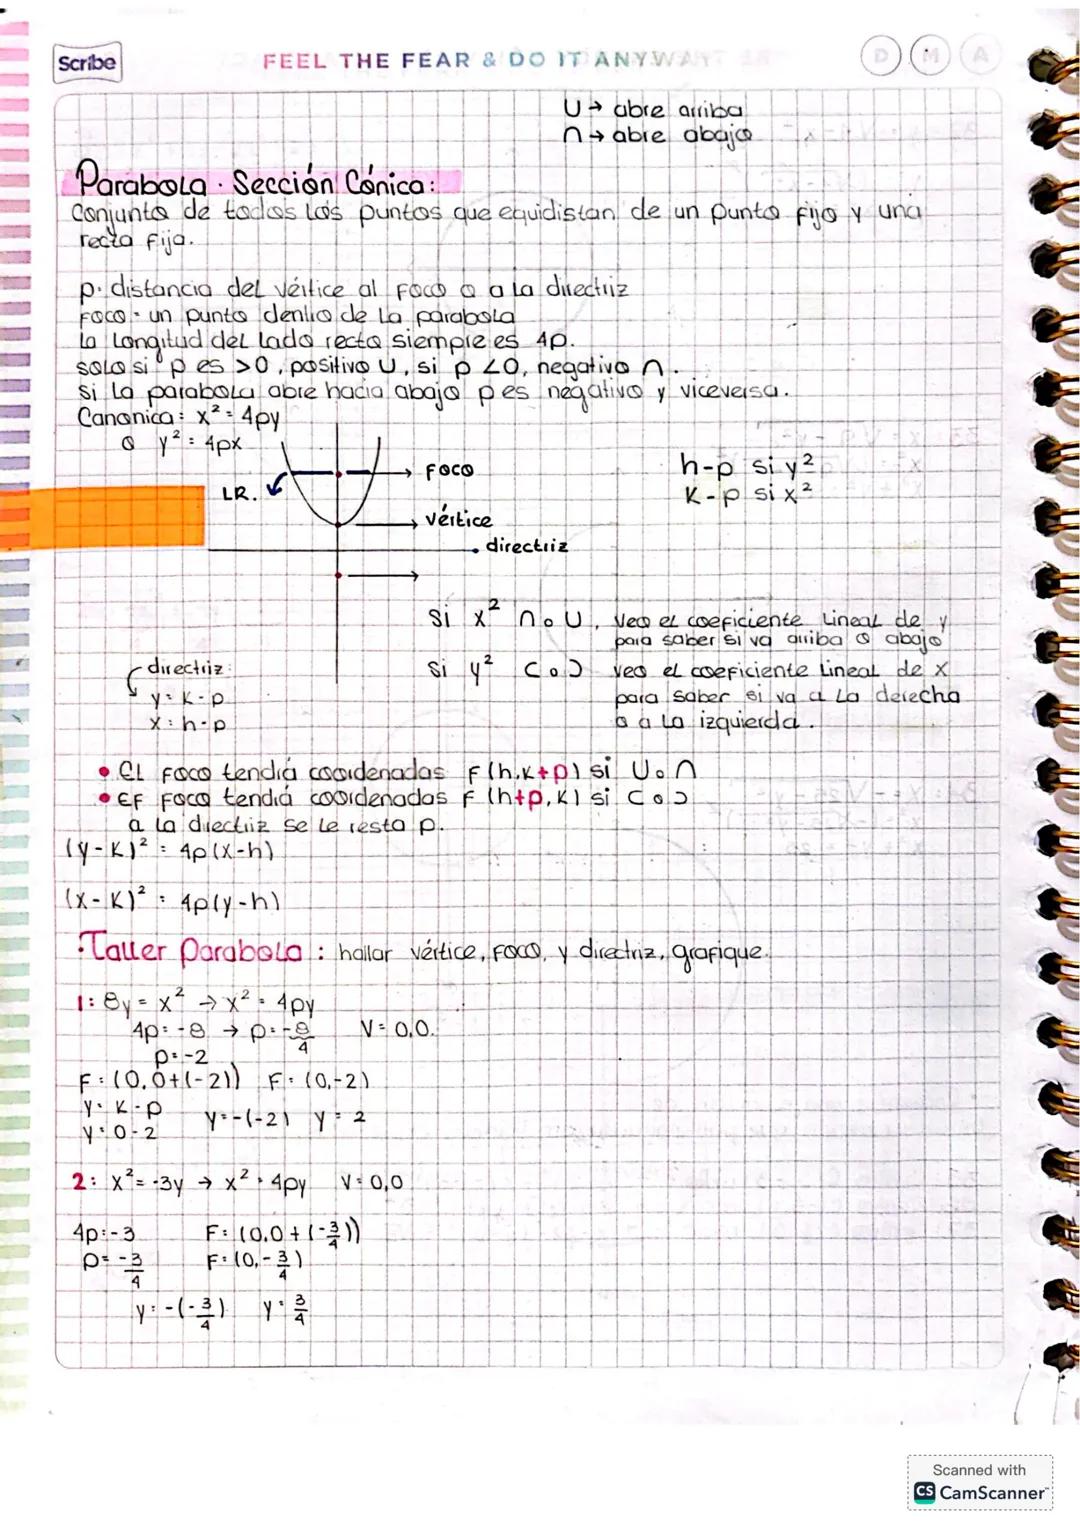 Scribe
FEEL THE FEAR & DO IT ANYWAY
D M A
U → abre arriba
∩ → abre abajo
Parabola · Sección Cónica:
Conjunto de todos los puntos que equidistan de un punto fijo y una
recta fija.
p· distancia del vértice al foco o a la directriz
Foco · un punto dentro de la parabola
La Longitud del lado recto siempre es 4p.
solo si p es >0, positivo U, si p <0, negativo ∩.
si la parabola abre hacia abajo p es negativo y viceversa.
Canonica: x² = 4py
o y² = 4px
foco
h-p si y²
LR.
K-p si x²
vértice
directriz
Si x² ∩ o U, veo el coeficiente Lineal de y
para saber si va arriba o abajo
directriz:
Si y² ⊂ o ⊃ veo el coeficiente Lineal de x
y = K-p
para saber si va a la derecha
x = h-p
o a la izquierda.
• El foco tendrá coordenadas F(h,K+p) si U o ∩
• EF foco tendrá coordenadas F (h+p,K) si ⊂ o ⊃
a la directriz se le resta p.
(y-K)² = 4p(x-h)
(x-K)² = 4p(y-h)
·Taller Parabola : hallar vértice, foco, y directriz, grafique.
1: 8y = x² → x² = 4py
4p = -8 → p = -8/4 V = 0,0.
p = -2
F = (0,0+(-2)) F = (0,-2)
y = K-p
y = -(-2) y = 2
y = 0-2
2: x² = -3y → x² = 4py V = 0,0
4p = -3 F = (0,0+(-3/4))
p = -3/4 F = (0,-3/4)
y = -(-3/4) y = 3/4
Scanned with
CS CamScanner